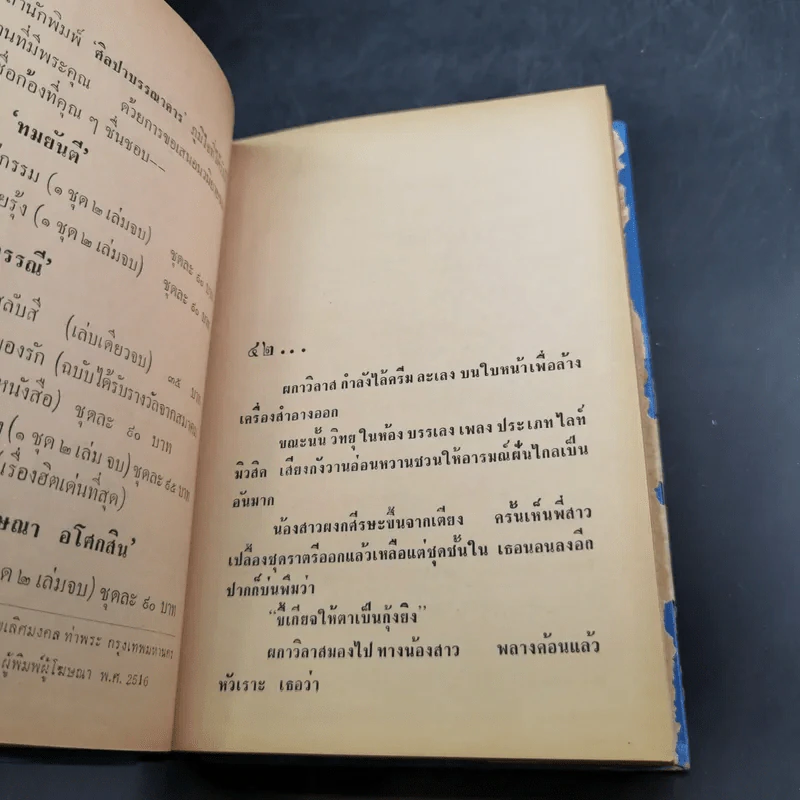 านักพิมพ์ 'ศิลปาบรรณาคาร' ภูมิใจที่
านที่มีพระคุณ ด้วยการขอเสนอ
ชื่อก้องที่คุณ ๆ ชื่นชอบ--
'ทมยันตี'
กรรม (๑ ชุด ๒ เล่มจบ) ชุดละ ๙๐ บาท
ยรุ้ง (๑ ชุด ๒ เล่มจบ) ชุดละ ๙๐ บาท
รรณี'
สลับสี (เล่มเดียวจบ) ๓๕ บาท
ของรัก (ฉบับได้รับรางวัลจากสมาคม
หนังสือ) ชุดละ ๙๐ บาท
(๑ ชุด ๒ เล่ม จบ) ชุดละ ๙๕ บาท
(เรื่องฮิตเด่นที่สุด)
ษณา อโศกสิน'
ด ๒ เล่มจบ) ชุดละ ๙๐ บาท
เลิศมงคล ท่าพระ กรุงเทพมหานคร
ผู้พิมพ์ผู้โฆษณา พ.ศ. 2516
๔๒...
ผกาวิลาส กำลังไล้ครีม ละเลง บนใบหน้าเพื่อล้าง
เครื่องสำอางออก
ขณะนั้น วิทยุ ในห้อง บรรเลง เพลง ประเภท ไลท์
มิวสิค เสียงกังวานอ่อนหวานชวนให้อารมณ์ฝันไกลเป็น
อันมาก
น้องสาวผงกศีรษะขึ้นจากเตียง ครั้นเห็นพี่สาว
เปลื้องชุดราตรีออกแล้วเหลือแต่ชุดชั้นใน เธอนอนลงอีก
ปากก็บ่นพึมว่า
"ขี้เกียจให้ตาเป็นกุ้งยิง"
ผกาวิลาสมองไป ทางน้องสาว พลางค้อนแล้ว
หัวเราะ เธอว่า